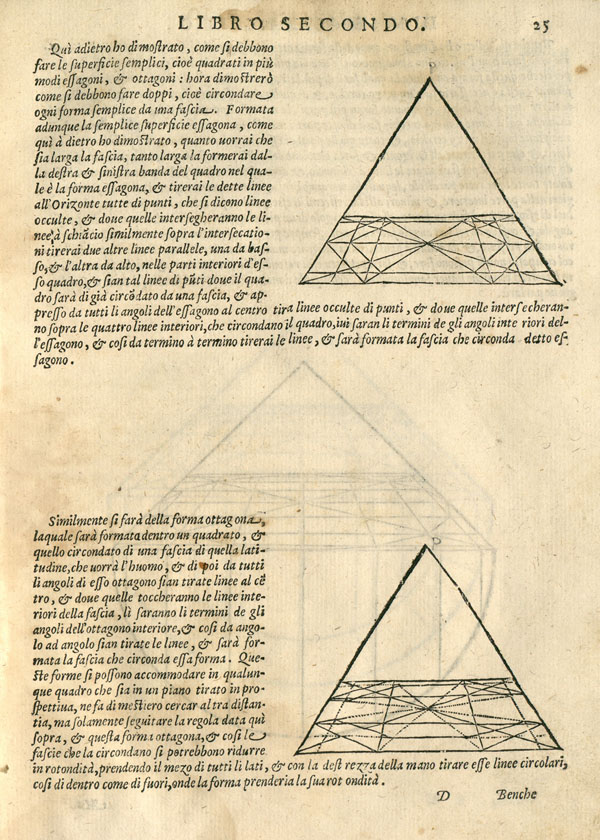 LIBRO SECONDO. 25
Quì adietro ho dimostrato, come si debbono
fare le superficie semplici, cioè quadrati in più
modi essagoni, & ottagoni: hora dimostrerò
come si debbono fare doppi, cioè circondare
ogni forma semplice da una fascia. Formata
adunque la semplice superficie essagona, come
quì à dietro ho dimostrato, quanto uorrai che
sia larga la fascia, tanto larga la formerai dal-
la destra & sinistra banda del quadro nel qua-
le è la forma essagona, & tirerai le dette linee
all'Orizonte tutte di punti, che si dicono linee
occulte, & doue quelle intersegheranno le li-
nee à schiacio similmente sopra l'intersecatio-
ni tirerai due altre linee parallele, una da bas-
so, & l'altra da alto, nelle parti interiori d'es-
so quadro, & sian tal linee di pũti doue il qua-
dro sarà di già circõdato da una fascia, & ap-
presso da tutti li angoli dell'essagono al centro tira linee occulte di punti, & doue quelle intersecheran-
no sopra le quattro linee interiori, che circondano il quadro, iui saran li termini de gli angoli inte riori del-
l'essagono, & cosi da termino à termino tirerai le linee, & sarà formata la fascia che circonda detto es-
sagono.
Similmente si farà della forma ottagona,
laquale sarà formata dentro un quadrato, &
quello circondato di una fascia di quella lati-
tudine, che uorrà l'huomo, & di poi da tutti
li angoli di esso ottagono sian tirate linee al cẽ
tro, & doue quelle toccheranno le linee inte-
riori della fascia, lì saranno li termini de gli
angoli dell'ottagono interiore, & cosi da ango-
lo ad angolo sian tirate le linee, & sarà for-
mata la fascia che circonda essa forma. Que-
ste forme si possono accommodare in qualun-
que quadro che sia in un piano tirato in pro-
spettiua, ne fa di mestiero cercar altra distan-
tia, ma solamente seguitar la regola data quì
sopra, & questa forma ottagona, & cosi le
fascie che la circondano si potrebbono ridurre
in rotondità, prendendo il mezo di tutti li lati, & con la dest rezza della mano tirare esse linee circolari,
cosi di dentro come di fuori, onde la forma prenderia la sua rot ondità.
D Benche